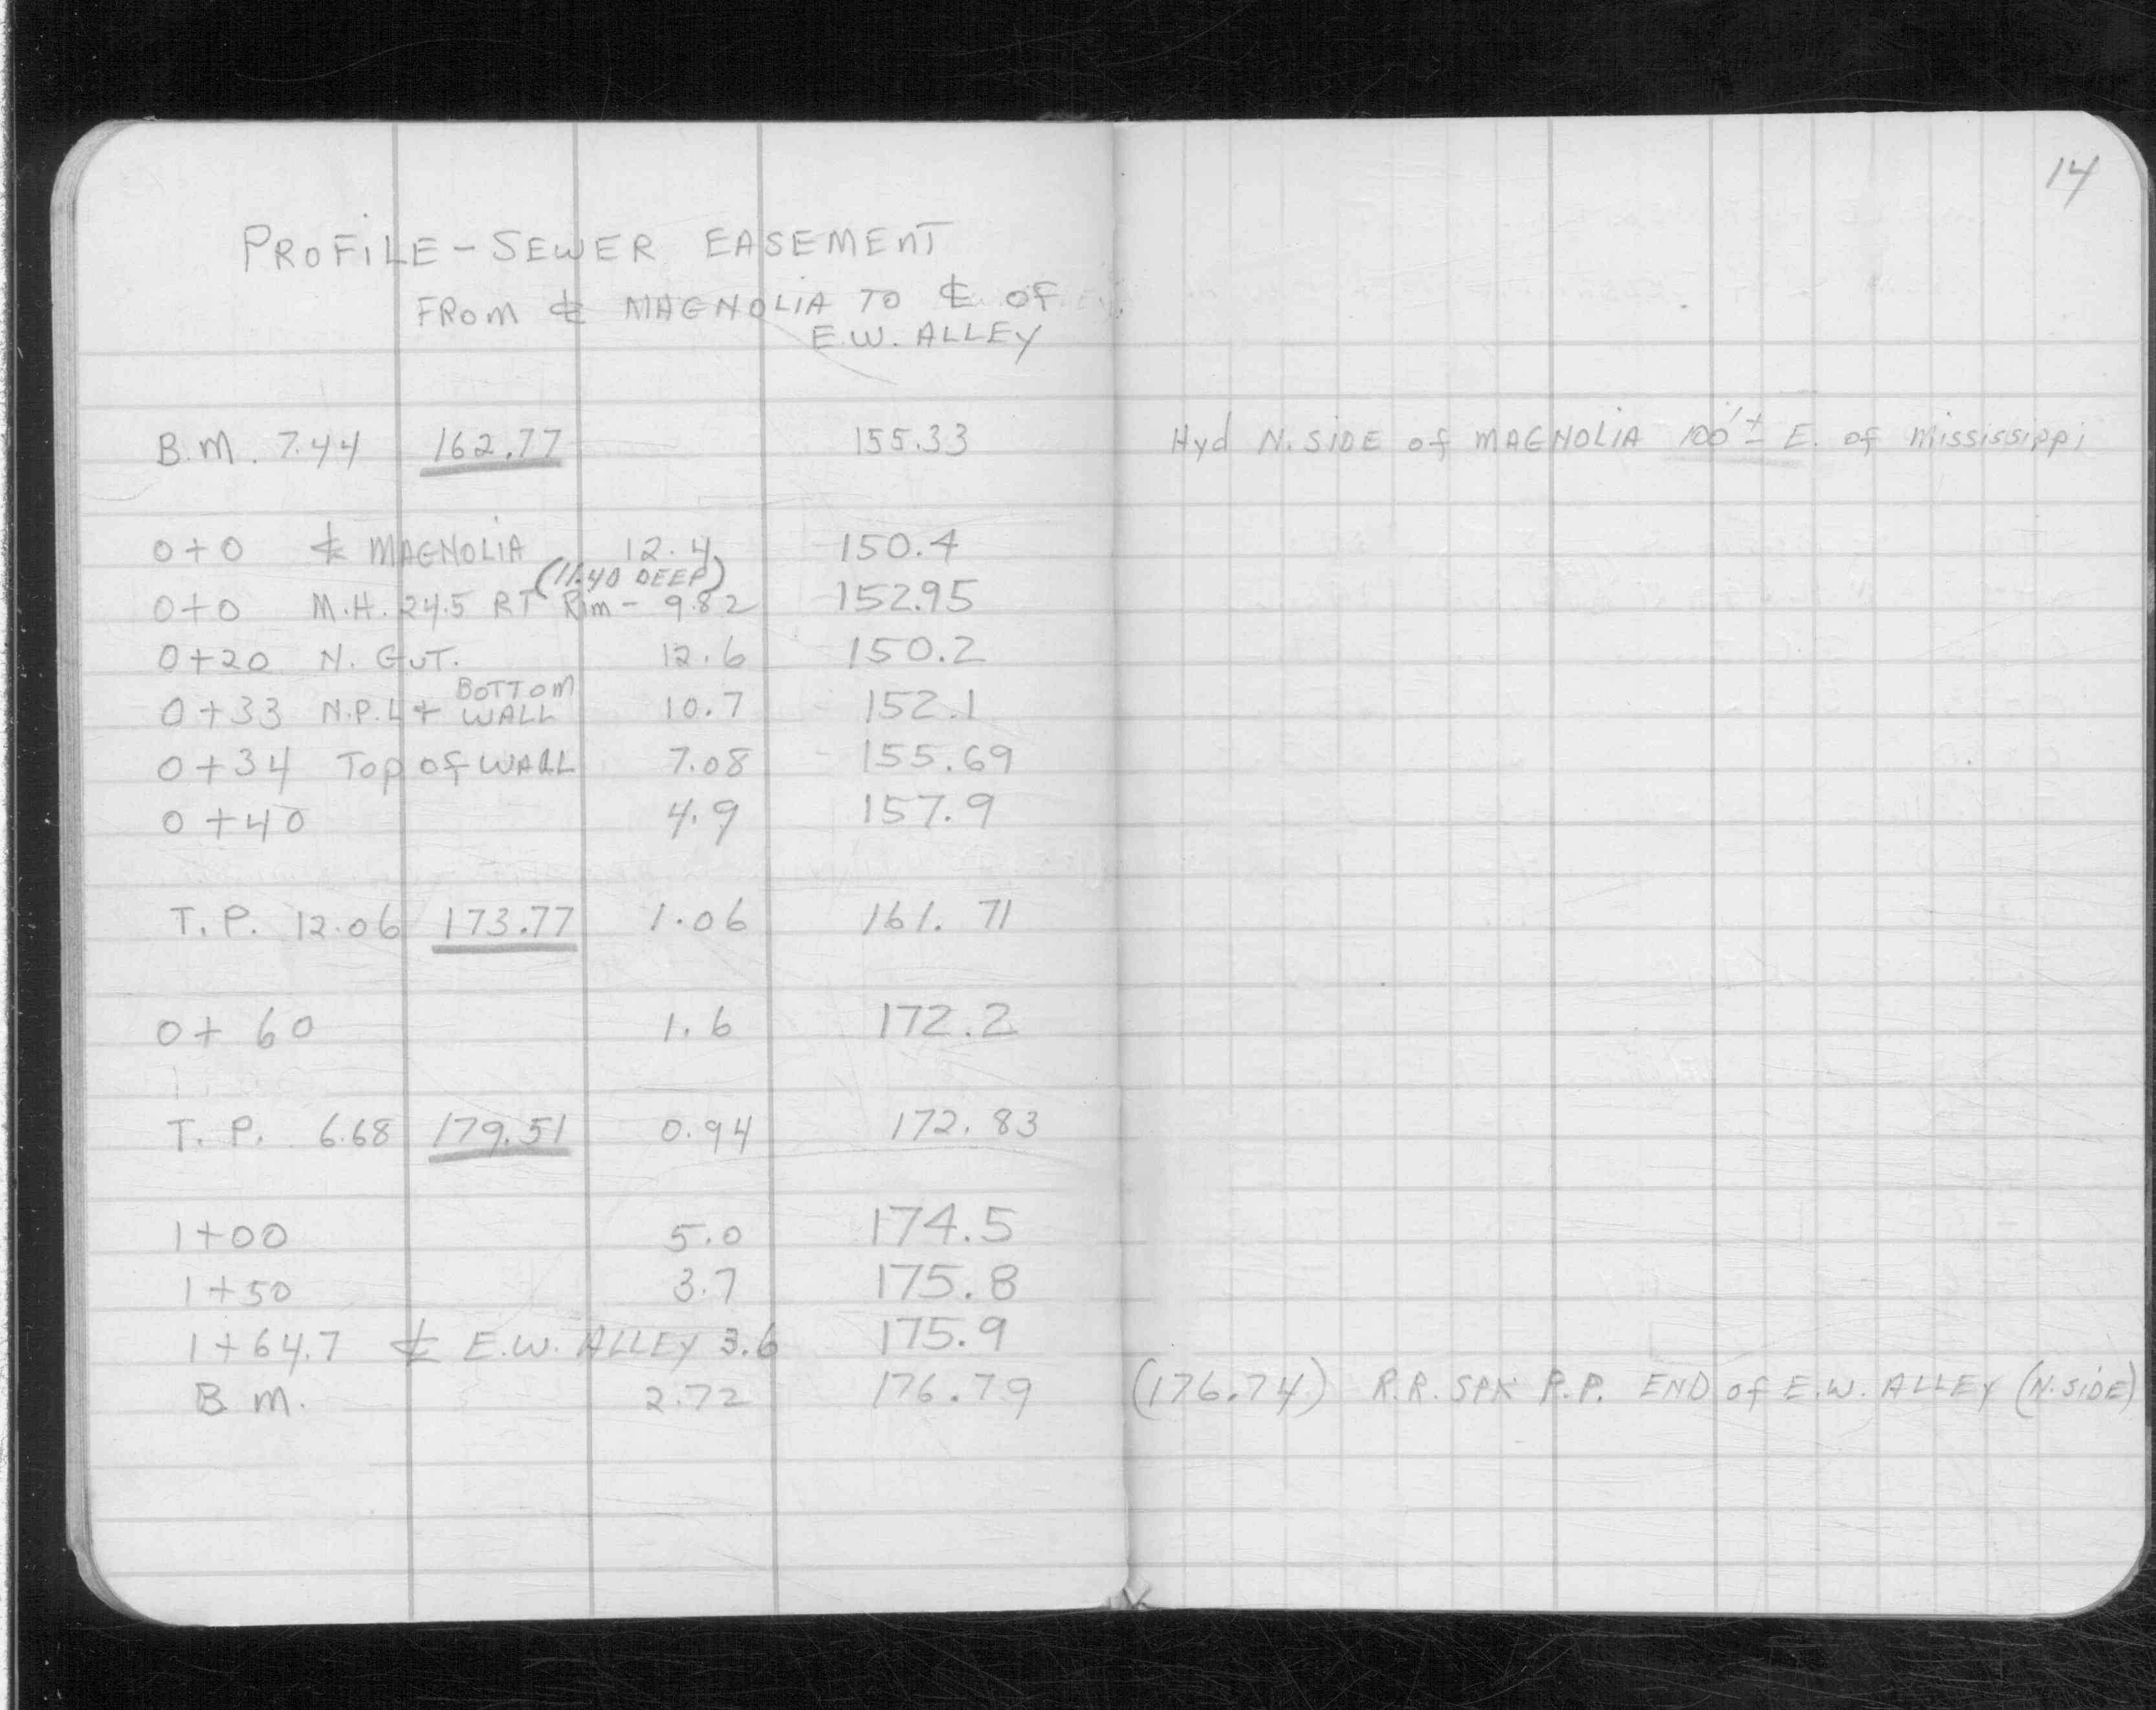 14
PROFILE - SEWER EASEMENT
FROM ℄ MAGNOLIA TO ℄ OF
E.W. ALLEY
B.M. 7.44 162.77 155.33 Hyd N. SIDE of MAGNOLIA 100'± E. of Mississippi
0+0 ℄ MAGNOLIA 12.4 150.4
(11.40 DEEP)
0+0 M.H. 24.5 RT Rim - 9.82 152.95
0+20 N. GUT. 12.6 150.2
BOTTOM
0+33 N.P.L + WALL 10.7 152.1
0+34 Top of WALL 7.08 155.69
0+40 4.9 157.9
T.P. 12.06 173.77 1.06 161.71
0+60 1.6 172.2
T.P. 6.68 179.51 0.94 172.83
1+00 5.0 174.5
1+50 3.7 175.8
1+64.7 ℄ E.W. ALLEY 3.6 175.9
B.M. 2.72 176.79 (176.74) R.R. SPK P.P. END of E.W. ALLEY (N. SIDE)